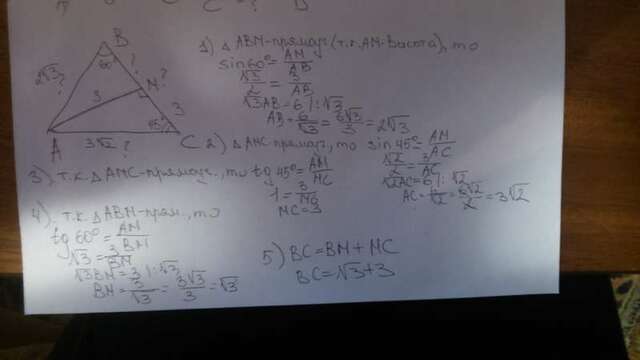 B
60°
2√3 ?
?
M ?
3
3
45°
A
3√2 ?
C
1) △ ABM - прямоуг. (т.к. AM - высота), то
sin60° = AM/AB
√3/2 = 3/AB
√3AB = 6 /:√3
AB = 6/√3 = 6√3/3 = 2√3
2) △ AMC прямоуг., то sin 45° = AM/AC
√2/2 = 3/AC
√2AC = 6 /:√2
AC = 6/√2 = 6√2/2 = 3√2
3) т.к. △ AMC - прямоуг., то tg 45° = AM/MC
1 = 3/MC
MC = 3
4) т.к. △ ABM - прям., то
tg 60° = AM/BM
√3 = 3/BM
√3 BM = 3 /:√3
BM = 3/√3 = 3√3/3 = √3
5) BC = BM + MC
BC = √3 + 3